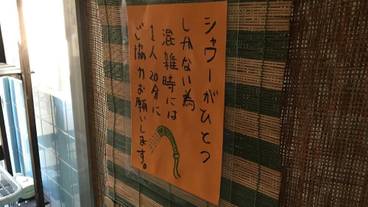 シャワーがひとつ
しかない為
混雑時には
1人20分に
ご協力お願いします。